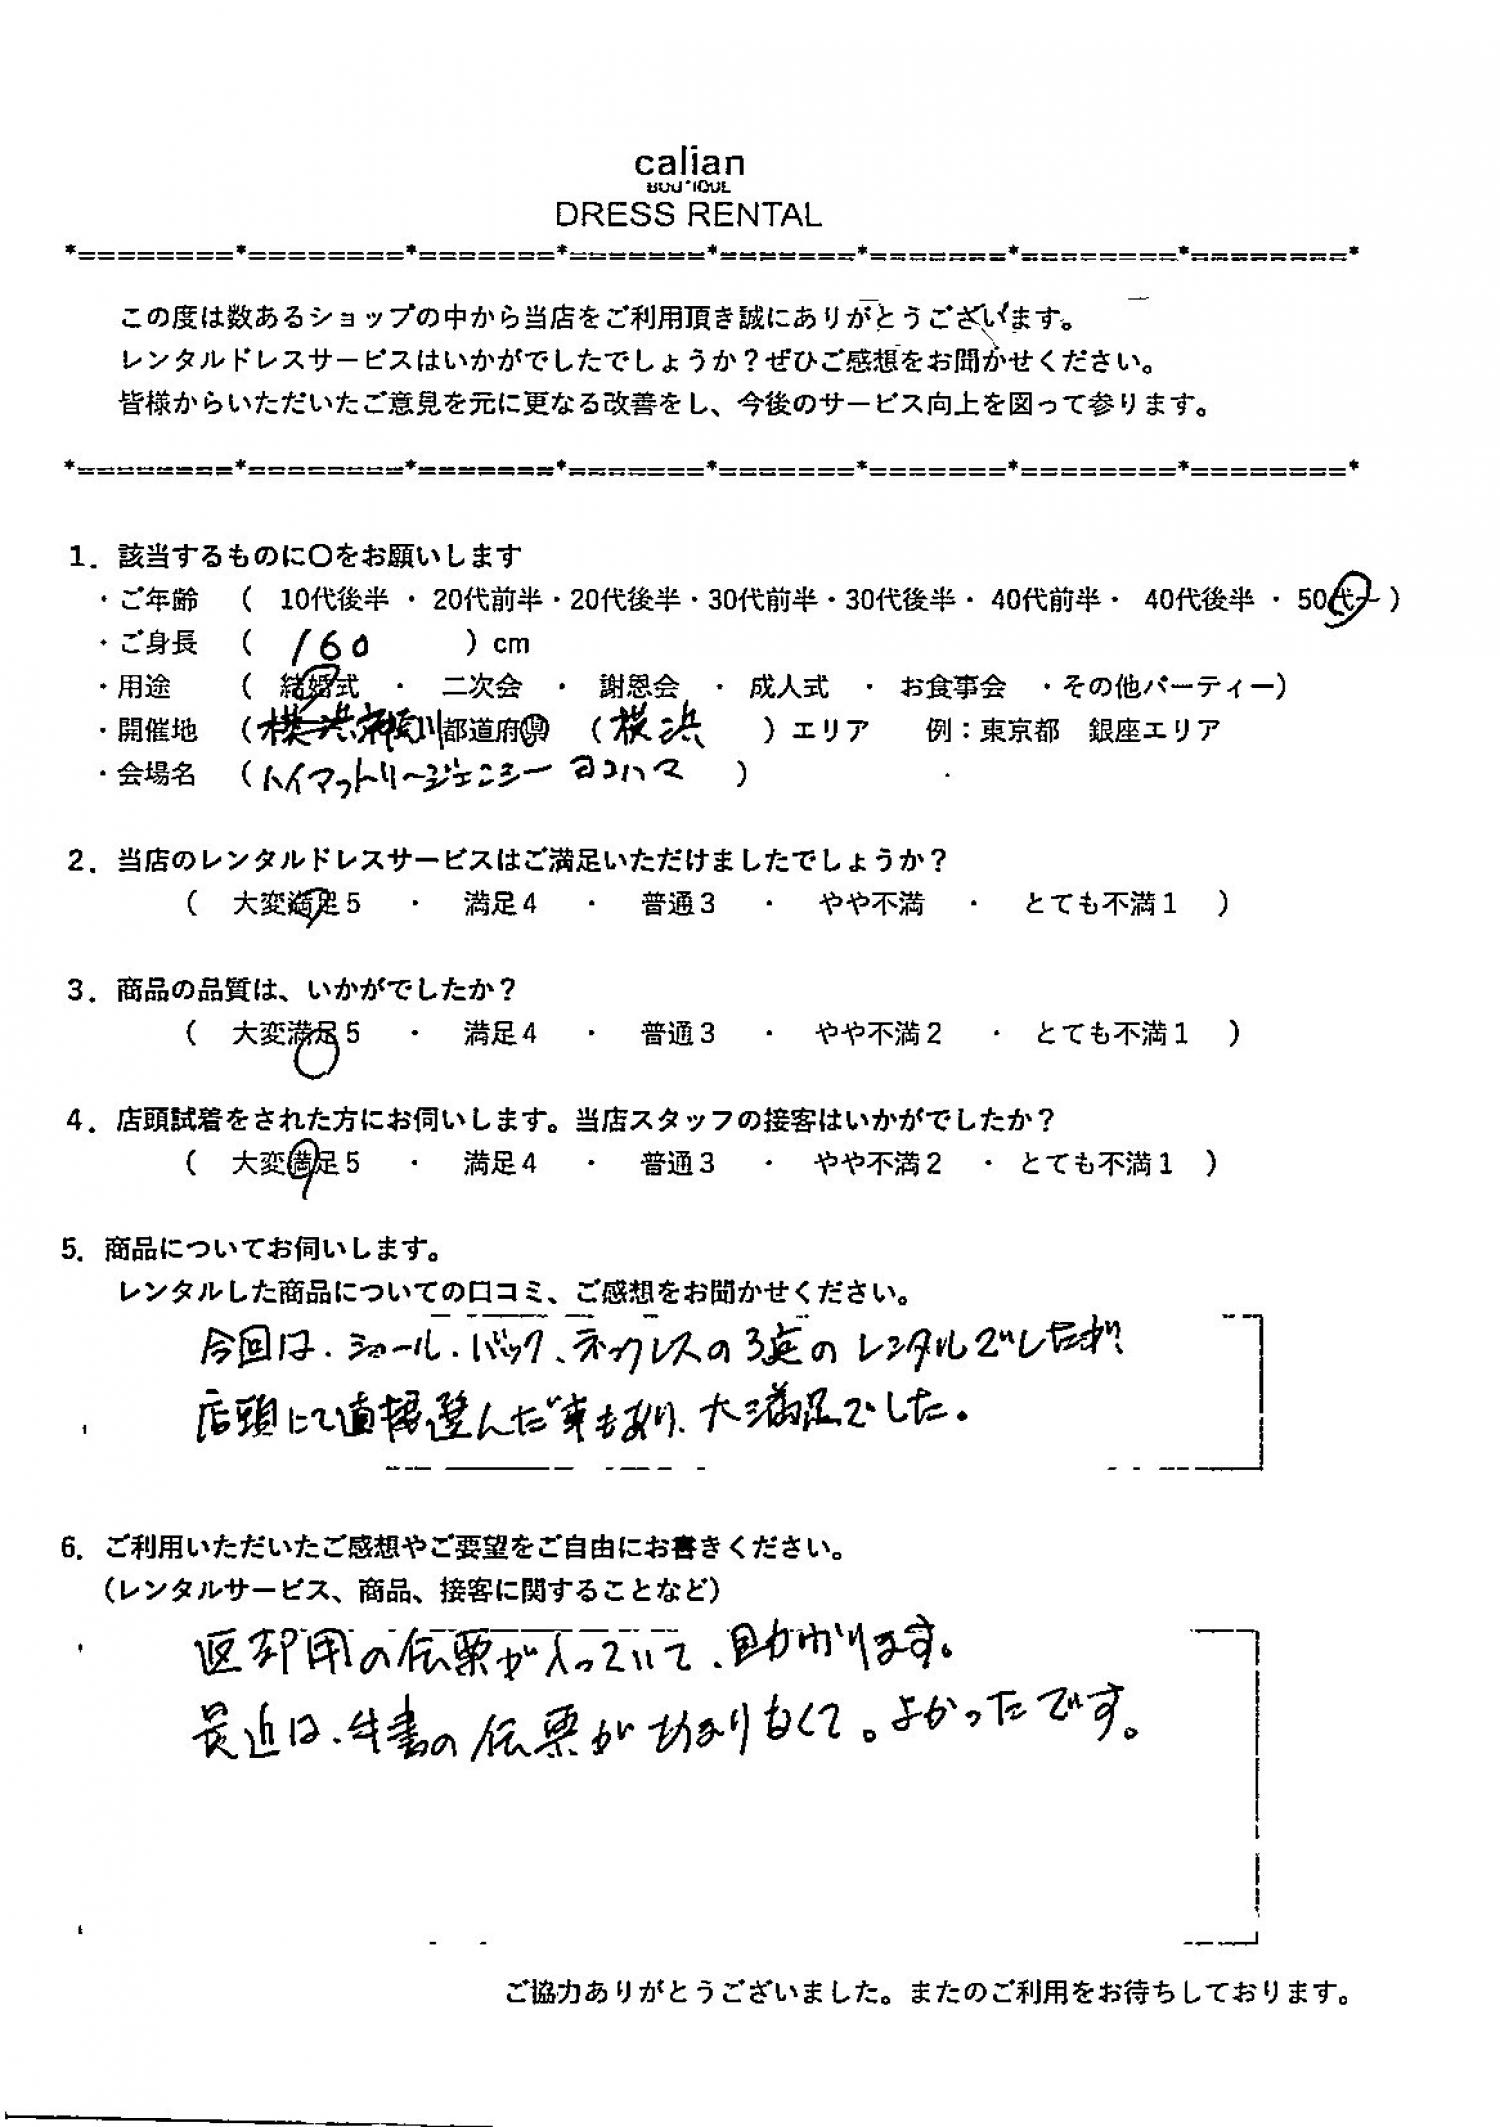 calian
BOUTIQUE
DRESS RENTAL
*========*========*=======*=======*=======*=======*========*========*
この度は数あるショップの中から当店をご利用頂き誠にありがとうございます。
レンタルドレスサービスはいかがでしたでしょうか？ぜひご感想をお聞かせください。
皆様からいただいたご意見を元に更なる改善をし、今後のサービス向上を図って参ります。
*========*========*=======*=======*=======*=======*========*========*
1．該当するものに〇をお願いします
・ご年齢 （ 10代後半 ・ 20代前半・20代後半・30代前半・30代後半・ 40代前半・ 40代後半 ・ 50代〜 ）
・ご身長 （ 160 ）cm
・用途 （ 結婚式 ・ 二次会 ・ 謝恩会 ・ 成人式 ・ お食事会 ・その他パーティー）
・開催地 （横浜 神奈川都道府県 （ 横浜 ）エリア 例：東京都 銀座エリア
・会場名 （ハイアットリージェンシー ヨコハマ ）
2．当店のレンタルドレスサービスはご満足いただけましたでしょうか？
（ 大変満足5 ・ 満足4 ・ 普通3 ・ やや不満 ・ とても不満1 ）
3．商品の品質は、いかがでしたか？
（ 大変満足5 ・ 満足4 ・ 普通3 ・ やや不満2 ・ とても不満1 ）
4．店頭試着をされた方にお伺いします。当店スタッフの接客はいかがでしたか？
（ 大変満足5 ・ 満足4 ・ 普通3 ・ やや不満2 ・ とても不満1 ）
5．商品についてお伺いします。
レンタルした商品についての口コミ、ご感想をお聞かせください。
今回は、ショール、バック、ネックレスの3点のレンタルでしたが
店頭にて直接選んだ事もあり、大満足でした。
6．ご利用いただいたご感想やご要望をご自由にお書きください。
（レンタルサービス、商品、接客に関することなど）
返却用の伝票が入っていて、助かります。
最近は、手書の伝票があまりなくて。よかったです。
ご協力ありがとうございました。またのご利用をお待ちしております。